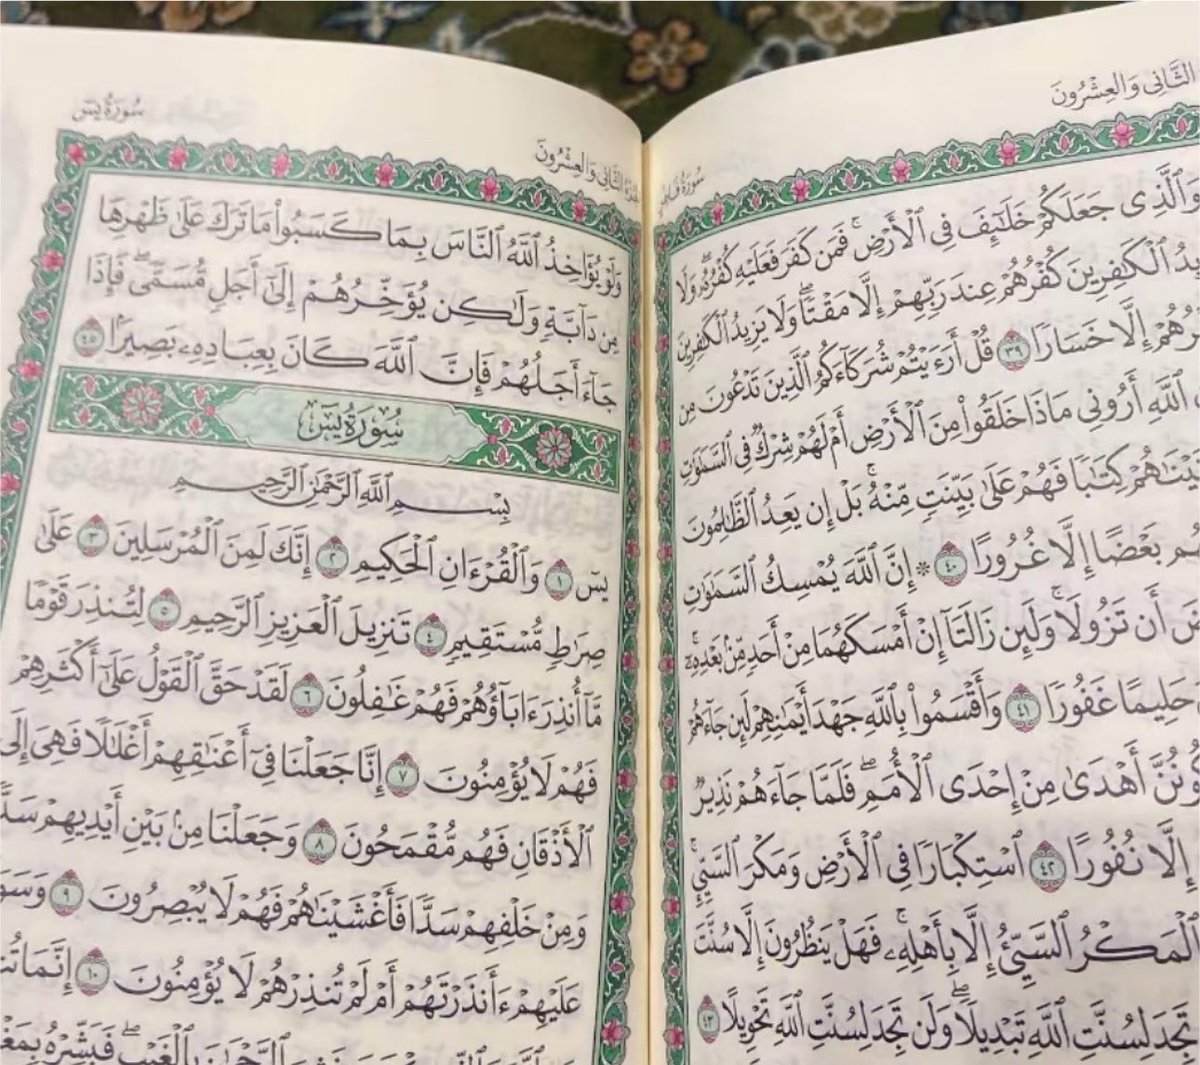 الثَّانِي وَالعِشْرُونَ
سُورَةُ فَاطِر
وَالَّذِى جَعَلَكُمْ خَلَٰٓئِفَ فِى ٱلْأَرْضِ ۚ فَمَن كَفَرَ فَعَلَيْهِ كُفْرُهُۥ ۖ وَلَا
يَزِيدُ ٱلْكَٰفِرِينَ كُفْرُهُمْ عِندَ رَبِّهِمْ إِلَّا مَقْتًا ۖ وَلَا يَزِيدُ ٱلْكَٰفِرِينَ
كُفْرُهُمْ إِلَّا خَسَارًا ٣٩ قُلْ أَرَءَيْتُمْ شُرَكَآءَكُمُ ٱلَّذِينَ تَدْعُونَ مِن
ٱللَّهِ أَرُونِى مَاذَا خَلَقُوا۟ مِنَ ٱلْأَرْضِ أَمْ لَهُمْ شِرْكٌ فِى ٱلسَّمَٰوَٰتِ
ءَاتَيْنَٰهُمْ كِتَٰبًا فَهُمْ عَلَىٰ بَيِّنَتٍ مِّنْهُ ۚ بَلْ إِن يَعِدُ ٱلظَّٰلِمُونَ
بَعْضُهُم بَعْضًا إِلَّا غُرُورًا ٤٠ ۞ إِنَّ ٱللَّهَ يُمْسِكُ ٱلسَّمَٰوَٰتِ
أَن تَزُولَا ۚ وَلَئِن زَالَتَآ إِنْ أَمْسَكَهُمَا مِنْ أَحَدٍ مِّنۢ بَعْدِهِۦٓ ۚ
حَلِيمًا غَفُورًا ٤١ وَأَقْسَمُوا۟ بِٱللَّهِ جَهْدَ أَيْمَٰنِهِمْ لَئِن جَآءَهُمْ
لَّيَكُونُنَّ أَهْدَىٰ مِنْ إِحْدَى ٱلْأُمَمِ ۖ فَلَمَّا جَآءَهُمْ نَذِيرٌ
إِلَّا نُفُورًا ٤٢ ٱسْتِكْبَارًا فِى ٱلْأَرْضِ وَمَكْرَ ٱلسَّيِّئِ ۚ
ٱلْمَكْرُ ٱلسَّيِّئُ إِلَّا بِأَهْلِهِۦ ۚ فَهَلْ يَنظُرُونَ إِلَّا سُنَّتَ
تَجِدَ لِسُنَّتِ ٱللَّهِ تَبْدِيلًا ۖ وَلَن تَجِدَ لِسُنَّتِ ٱللَّهِ تَحْوِيلًا ٤٣
الجُزْءُ الثَّانِي وَالعِشْرُونَ
سُورَةُ يسٓ
وَلَوْ يُؤَاخِذُ ٱللَّهُ ٱلنَّاسَ بِمَا كَسَبُوا۟ مَا تَرَكَ عَلَىٰ ظَهْرِهَا
مِن دَآبَّةٍ وَلَٰكِن يُؤَخِّرُهُمْ إِلَىٰٓ أَجَلٍ مُّسَمًّى ۖ فَإِذَا
جَآءَ أَجَلُهُمْ فَإِنَّ ٱللَّهَ كَانَ بِعِبَادِهِۦ بَصِيرًۢا ٤٥
سُورَةُ يسٓ
بِسْمِ ٱللَّهِ ٱلرَّحْمَٰنِ ٱلرَّحِيمِ
يسٓ ١ وَٱلْقُرْءَانِ ٱلْحَكِيمِ ٢ إِنَّكَ لَمِنَ ٱلْمُرْسَلِينَ ٣ عَلَىٰ
صِرَٰطٍ مُّسْتَقِيمٍ ٤ تَنزِيلَ ٱلْعَزِيزِ ٱلرَّحِيمِ ٥ لِتُنذِرَ قَوْمًا
مَّآ أُنذِرَ ءَابَآؤُهُمْ فَهُمْ غَٰفِلُونَ ٦ لَقَدْ حَقَّ ٱلْقَوْلُ عَلَىٰٓ أَكْثَرِهِمْ
فَهُمْ لَا يُؤْمِنُونَ ٧ إِنَّا جَعَلْنَا فِىٓ أَعْنَٰقِهِمْ أَغْلَٰلًا فَهِىَ إِلَى
ٱلْأَذْقَانِ فَهُم مُّقْمَحُونَ ٨ وَجَعَلْنَا مِنۢ بَيْنِ أَيْدِيهِمْ سَدًّا
وَمِنْ خَلْفِهِمْ سَدًّا فَأَغْشَيْنَٰهُمْ فَهُمْ لَا يُبْصِرُونَ ٩ وَسَوَآءٌ
عَلَيْهِمْ ءَأَنذَرْتَهُمْ أَمْ لَمْ تُنذِرْهُمْ لَا يُؤْمِنُونَ ١٠ إِنَّمَا تُنذِرُ
ٱلرَّحْمَٰنَ بِٱلْغَيْبِ ۖ فَبَشِّرْهُ بِمَغْفِرَةٍ